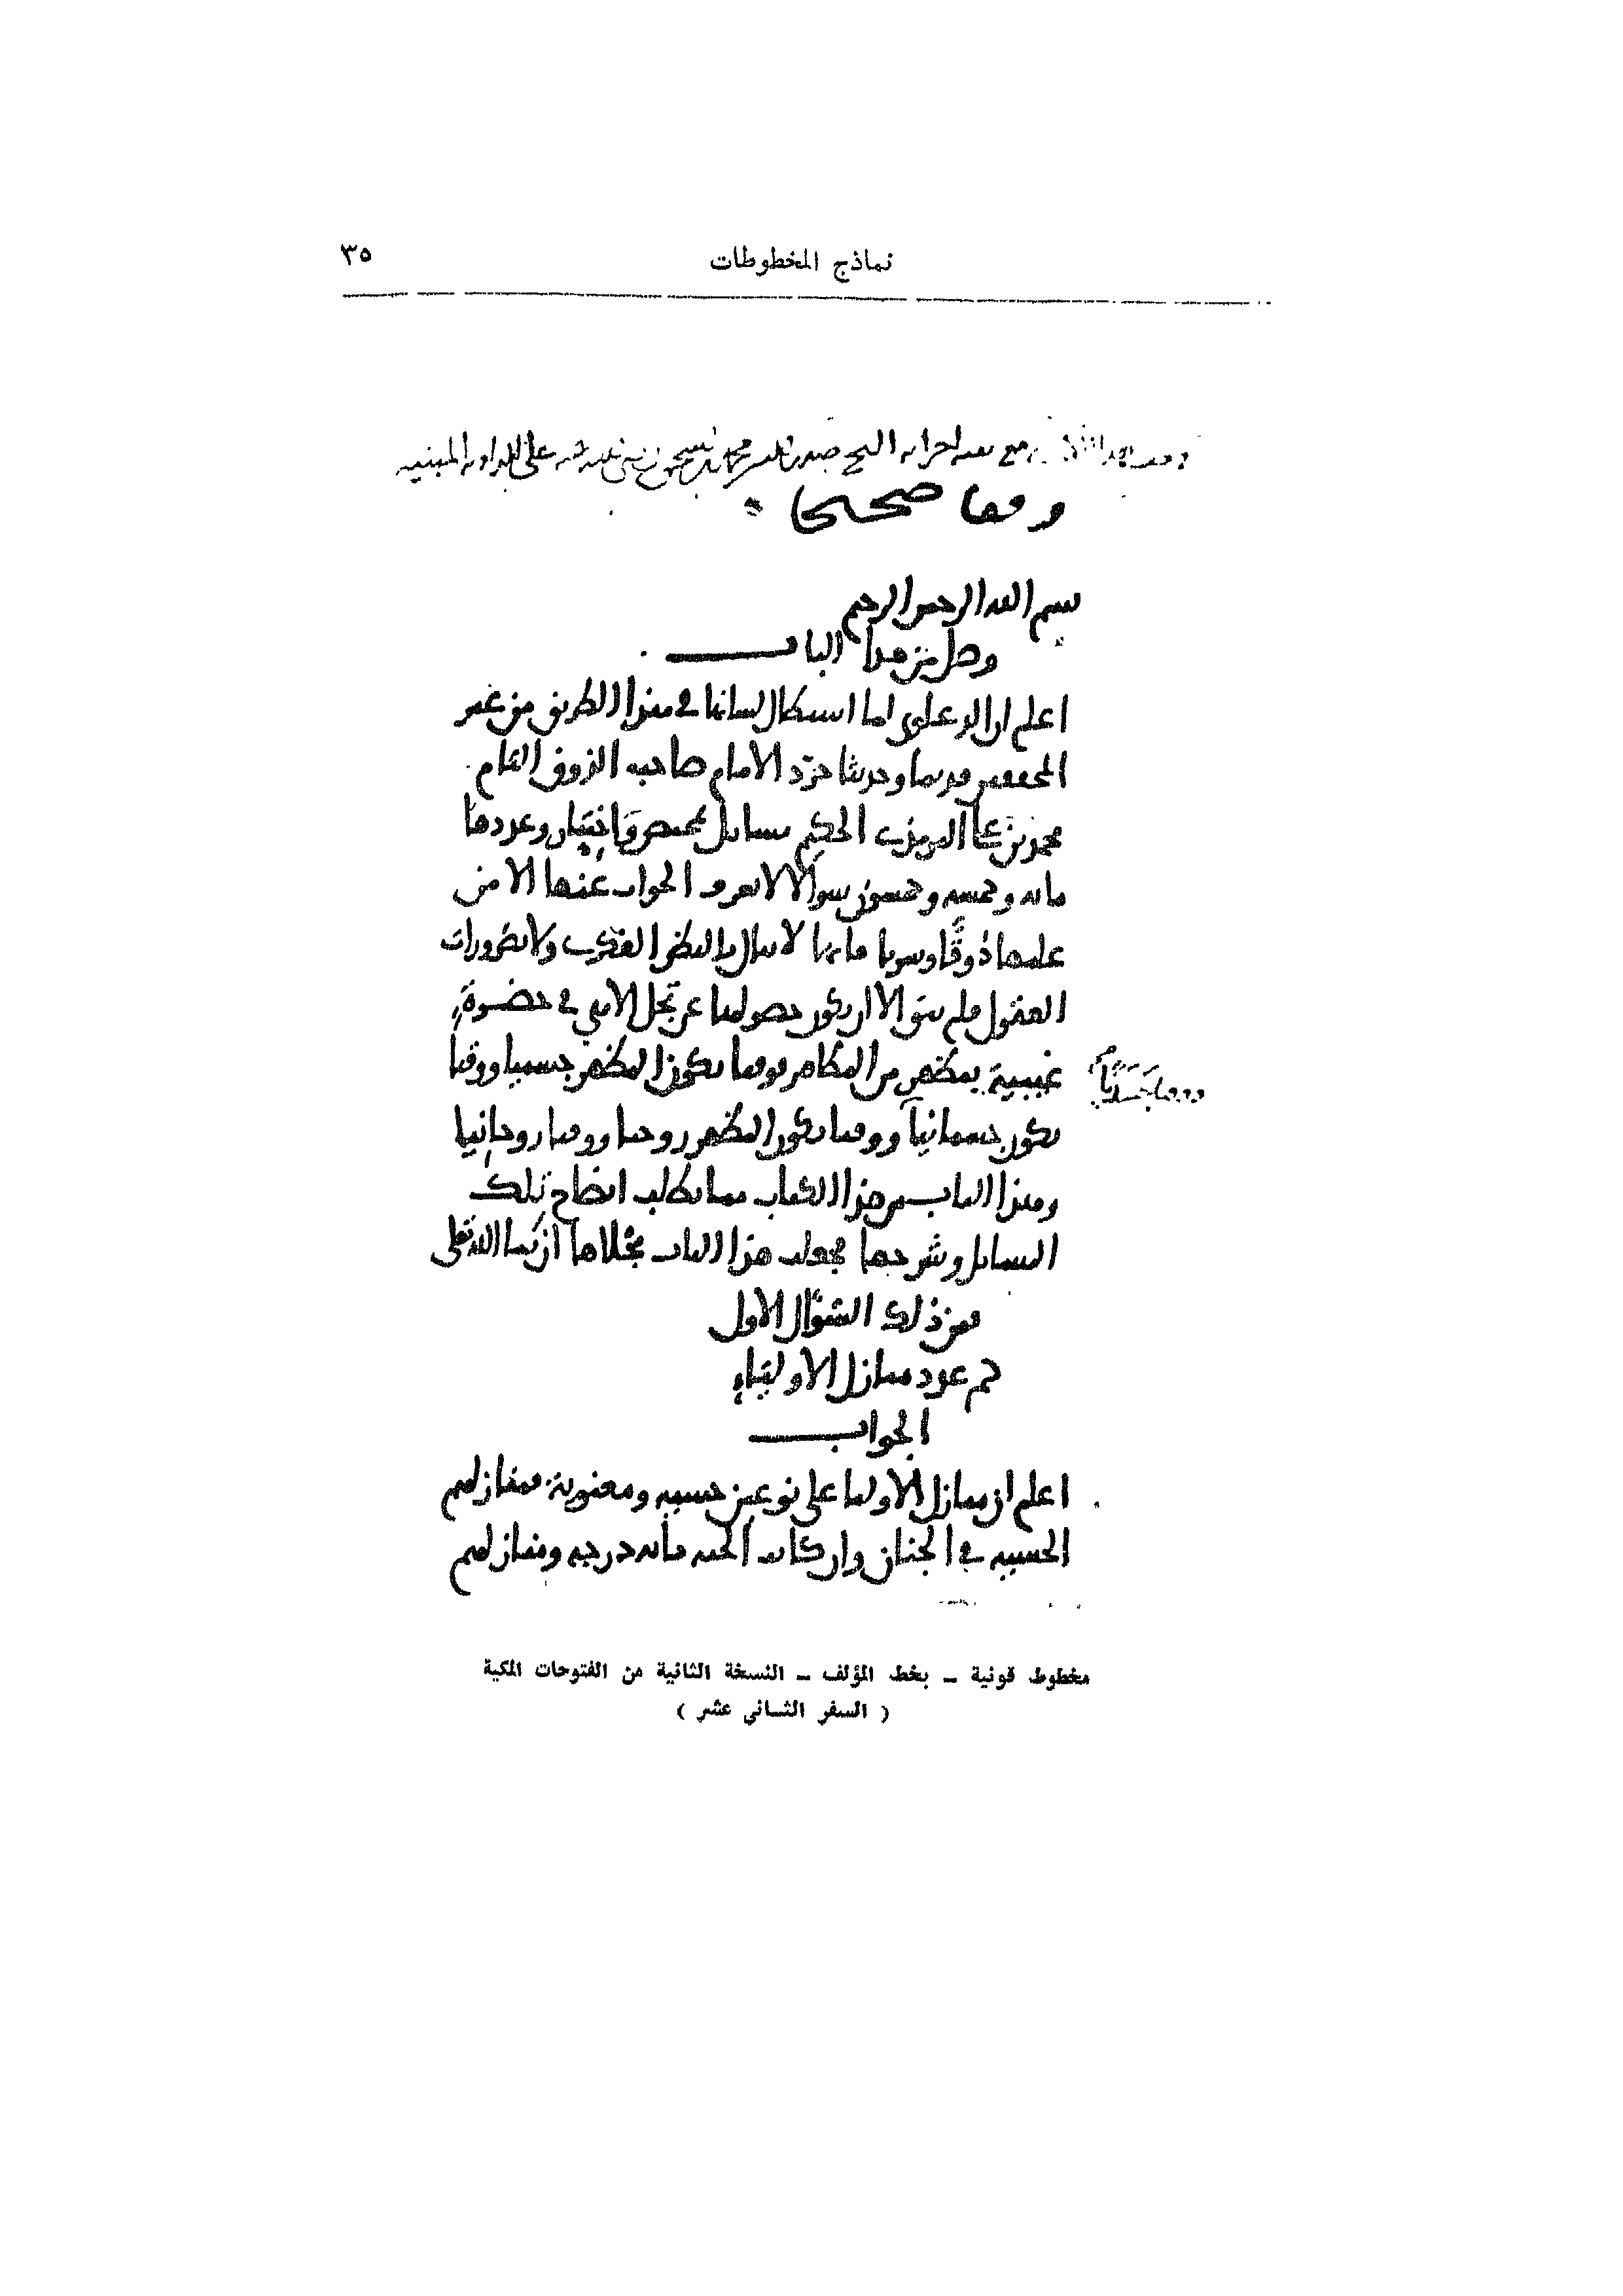 نماذج المخطوطات ٣٥
مع الشيخ صدر الدين محمد بن إسحق على المبنيه
وقفا صحيحا
بسم الله الرحمن الرحيم
وصل من هذا الباب
اعلم ان الدعاوى لما استطال لسانها في هذا الطريق من غير
المحققين قديما وحديثا جرّد الامام صاحب الذوق التام
محمد بن علي الترمذي الحكيم مسايل تمحيص وَاختِبَار وعددها
مايه وخمسه وخمسون سوالا لا يعرف الجواب عنها الا من
علمها ذوقًا وشربا فانها لا تنال بالنظر الفكري ولا بضرورات
العقول فلم يبق الا ان يكون حصولها عن تجل الاهي في حضرة
غيبية بمظهر من المظاهر فوقتا يكون المظهر جسميا ووقتا
ووقتا جَسَديًّا
يكون جسمانيا ووقتا يكون المظهر روحيا ووقتا روحانيا
وهذا الباب من هذا الكتاب مما يطلب ايضاح تلك
المسايل وشرحها فجعلت هذا الباب مجلاها ان شا الله تعلى
فمن ذلك السّؤال الاول
كم عدد منازل الاولياء
الجواب
اعلم ان منازل الاوليا على نوعين حسيه ومعنوية فمنازلهم
الحسيه في الجنان وان كانت الجنه مايه درجه ومنازلهم
مخطوط قونية ــ بخط المؤلف ــ النسخة الثانية من الفتوحات المكية
( السفر الثاني عشر )